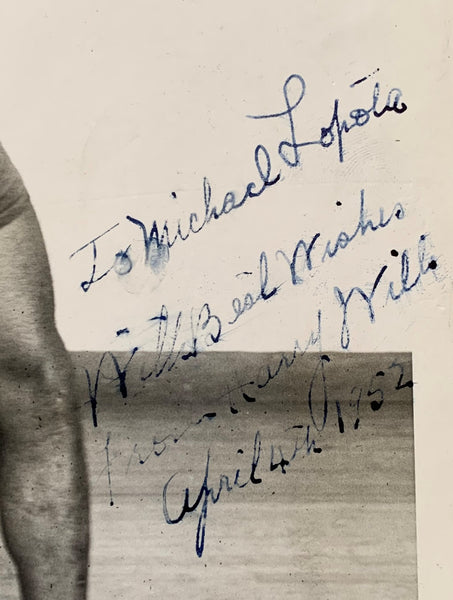 To Michael Lopola
With Best Wishes
From Harry Will
April 4th 1952